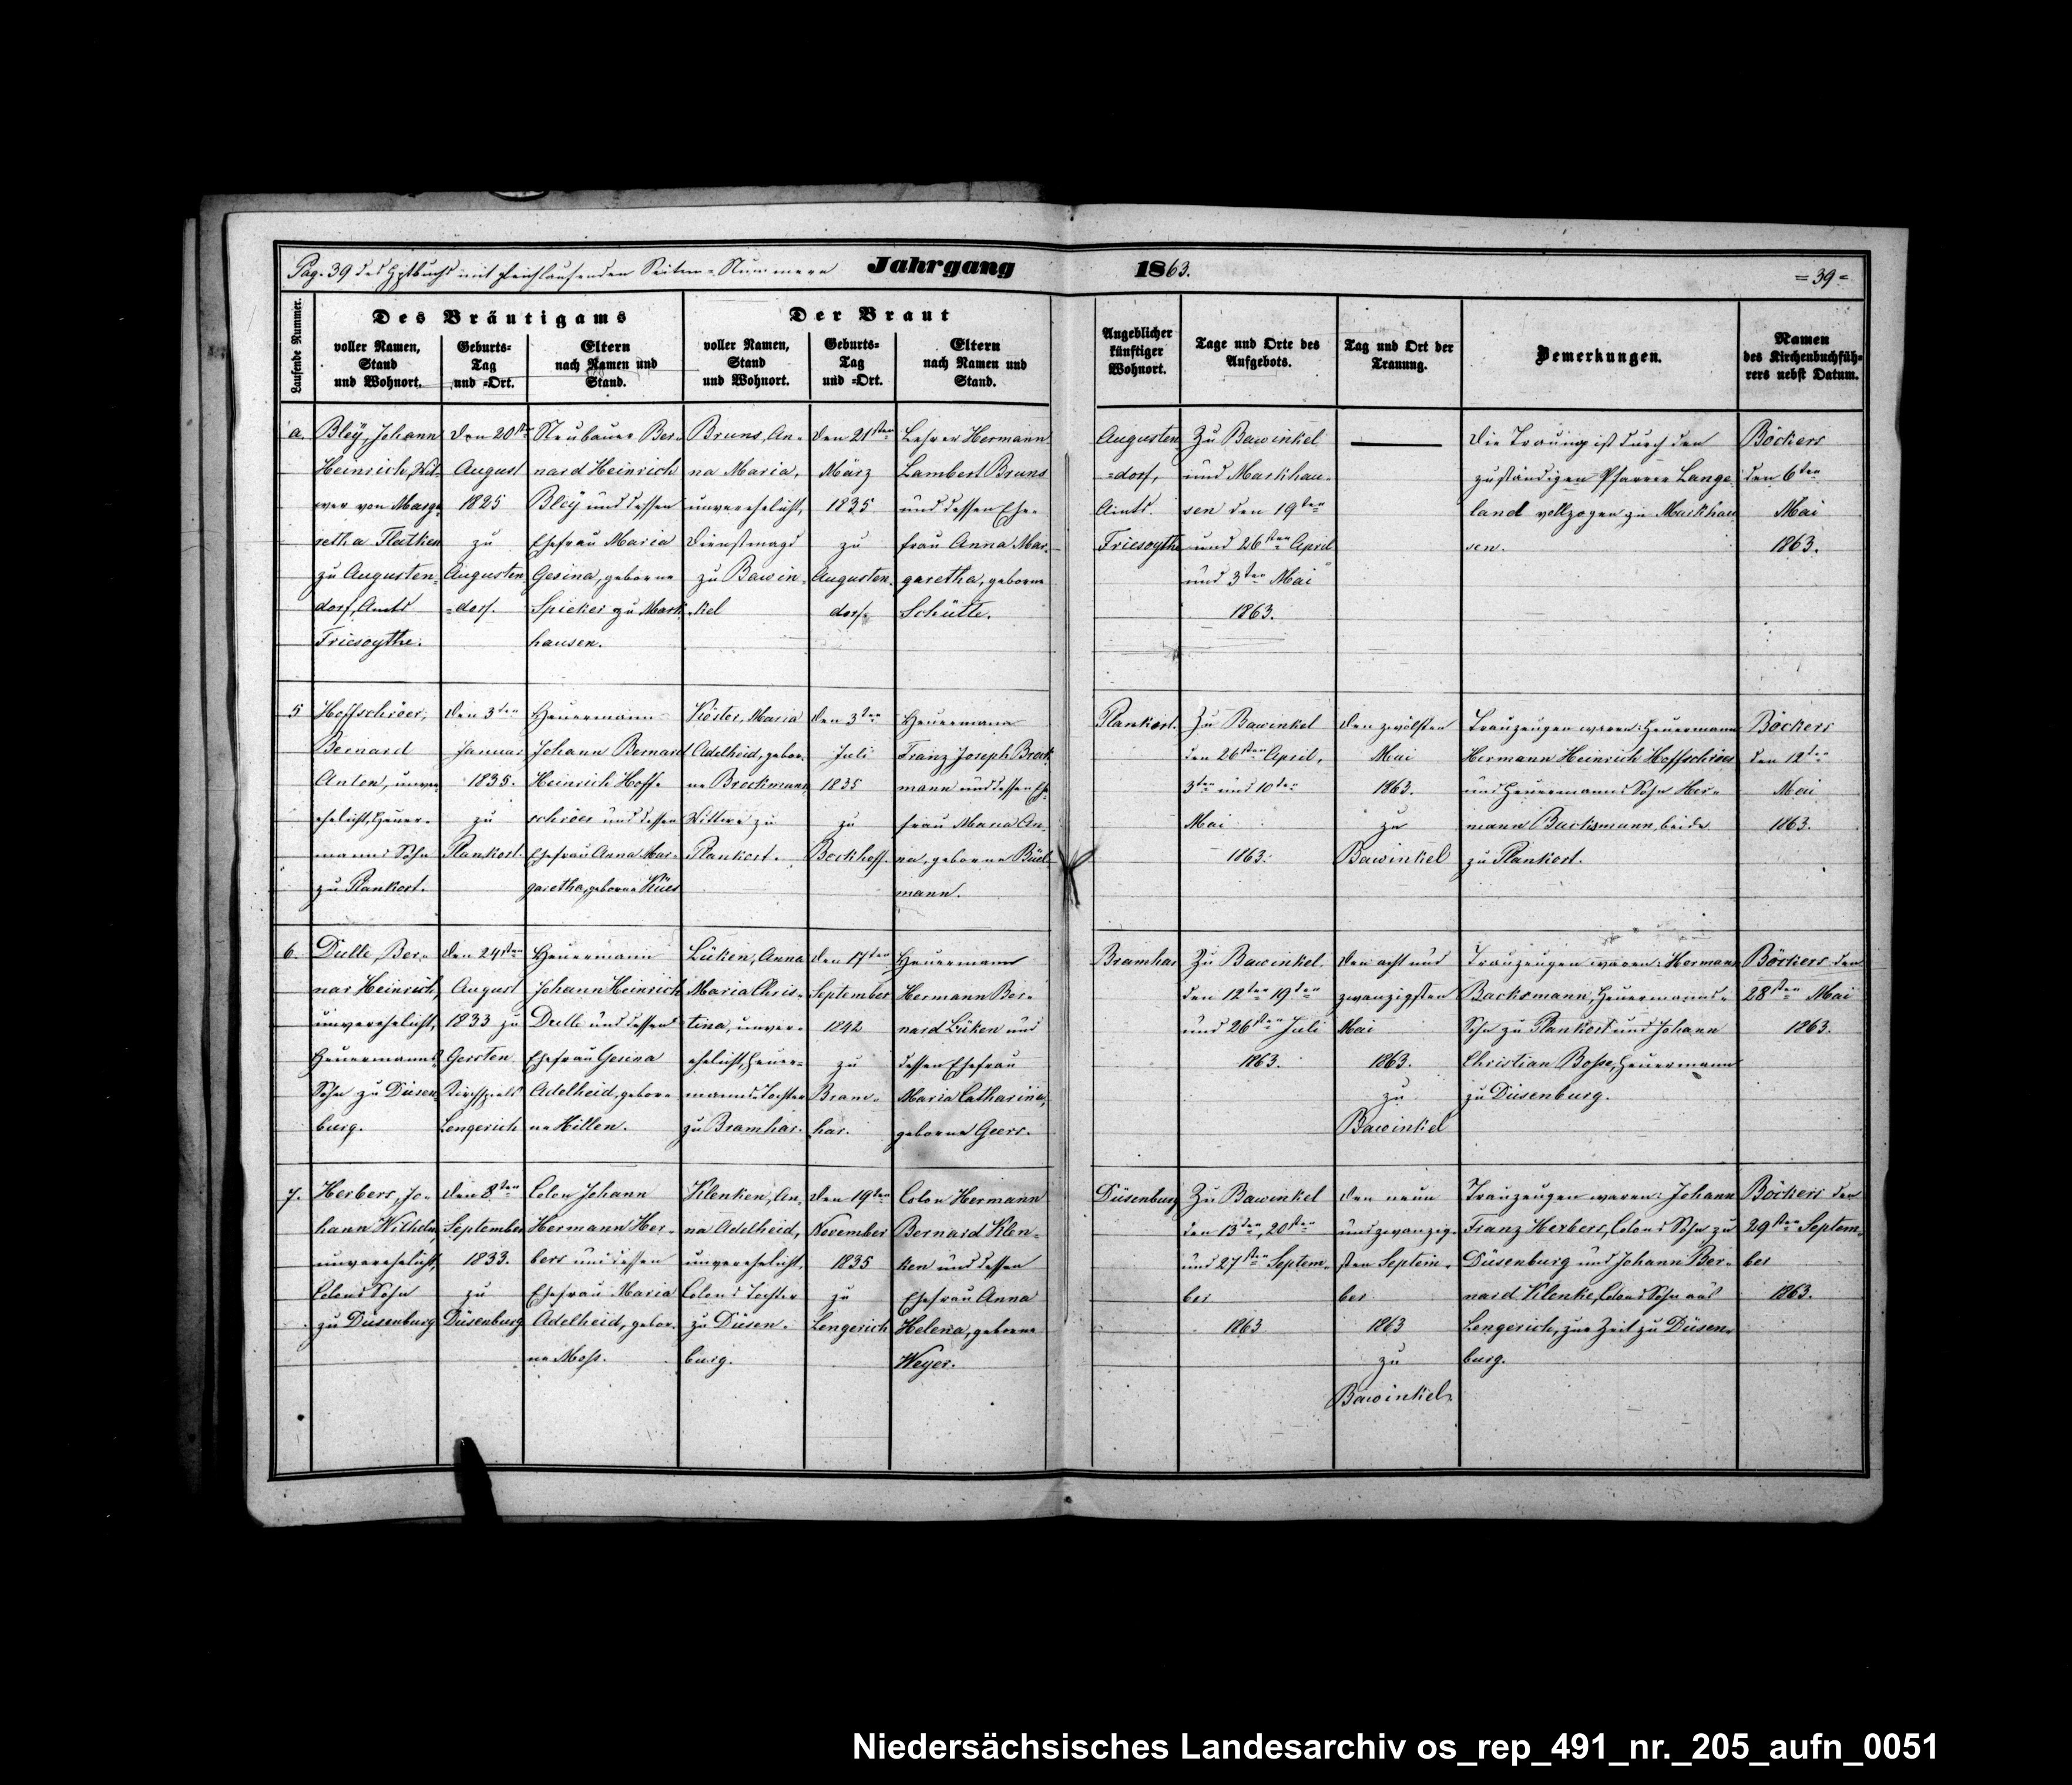 Pag. 39 des Hptbuchs mit gleichlaufenden Seiten-Nummern Jahrgang 1863. =39=
Laufende Nummer.
Des Bräutigams
voller Namen,
Stand
und Wohnort.
Geburts-
Tag
und =Ort.
Eltern
nach Namen und
Stand.
Der Braut
voller Namen,
Stand
und Wohnort.
Geburts-
Tag
und =Ort.
Eltern
nach Namen und
Stand.
Angeblicher
künftiger
Wohnort.
Tage und Orte des
Aufgebots.
Tag und Ort der
Trauung.
Bemerkungen.
Namen
des Kirchenbuchfüh-
rers nebst Datum.
a.
Bley, Johann
Heinrich, Wit-
wer von Marga-
retha Flatken
zu Augusten-
dorf, Amts
Friesoythe.
den 20sten
August
1825
zu
Augusten
=dorf.
Neubauer Ber-
nard Heinrich
Bley und dessen
Ehefrau Maria
Gesina, geborne
Spieker zu Mark-
hausen.
Bruns, An-
na Maria,
unverehelicht,
Dienstmagd
zu Bawin-
kel
den 21sten
März
1835
zu
Augusten-
dorf.
Lehrer Hermann
Lambert Bruns
und dessen Ehe-
frau Anna Mar-
garetha, geborne
Schütte.
Augusten
=dorf,
Amts
Friesoythe
Zu Bawinkel
und Markhau-
sen den 19ten
und 26sten April
und 3ten Mai
1863.
Die Trauung ist durch den
zuständigen Pfarrer Lange-
land vollzogen zu Markhau
sen.
Böckers
den 6ten
Mai
1863.
5
Hoffschröer,
Bernard
Anton, unver-
ehelicht, Heuer-
manns Sohn
zu Plankort.
den 3ten
Januar
1835.
zu
Plankort.
Heuermann
Johann Bernard
Heinrich Hoff-
schröer und dessen
Ehefrau Anna Mar-
garetha, geborne Kües
Köster, Maria
Adelheid, gebor-
ne Brockmann,
Wittwe zu
Plankort.
den 3ten
Juli
1835
zu
Bockhoff.
Heuermann
Franz Joseph Brock
mann und dessen Ehe-
frau Maria An-
na, geborne
mann.
Plankort.
Zu Bawinkel
den 26sten April,
3ten und 10ten
Mai
1863.
den zwölften
Mai
1863.
zu
Bawinkel
Trauzeugen waren: Heuermann
Hermann Heinrich Hoffschröer
und Heuermanns Sohn Her-
mann Backsmann, beide
zu Plankort.
Böckers
den 12ten
Mai
1863.
6.
Dulle, Ber-
nar Heinrich,
unverehelicht,
Heuermanns
Sohn zu Düsen-
burg.
den 24sten
August
1833 zu
Gersten
Kirchspiels
Lengerich
Heuermann
Johann Heinrich
Dulle und dessen
Ehefrau Gesina
Adelheid, gebor-
ne Hillen.
Lüken, Anna
Maria Chris-
tina, unver-
ehelicht, Heuer-
manns Tochter
zu Bramhar.
den 17ten
September
1842
zu
Bram-
har.
Heuermann
Hermann Ber-
nard Lüken und
dessen Ehefrau
Maria Catharina,
geborne Geers.
Bramhar
Zu Bawinkel
den 12ten 19ten
und 26sten Juli
1863.
den acht und
zwanzigsten
Mai
1863.
zu
Bawinkel
Trauzeugen waren: Hermann
Backsmann, Heuermanns-
Sohn zu Plankort und Johann
Christian Bosse, Heuermann
zu Düsenburg.
Böckers den
28sten Mai
1863.
7.
Herbers, Jo-
hann Wilhelm,
unverehelicht,
Colons Sohn
zu Düsenburg
den 8ten
September
1833.
zu
Düsenburg
Colon Johann
Hermann Her-
bers und dessen
Ehefrau Maria
Adelheid, gebor-
ne Moss.
Klenken, An-
na Adelheid,
unverehelicht,
Colons Tochter
zu Düsen-
burg.
den 19ten
November
1835
zu
Lengerich
Colon Hermann
Bernard Klen-
ken und dessen
Ehefrau Anna
Helena, geborne
Weyer.
Düsenburg
Zu Bawinkel
den 13ten, 20sten
und 27sten Septem-
ber
1863
den neun
und zwanzig-
sten Septem-
ber
1863
zu
Bawinkel.
Trauzeugen waren: Johann
Franz Herbers, Colons Sohn zu
Düsenburg und Johann Ber-
nard Klenke, Colons Sohn aus
Lengerich, zur Zeit zu Düsen-
burg.
Böckers den
29sten Septem-
ber
1863.
Niedersächsisches Landesarchiv os_rep_491_nr._205_aufn_0051